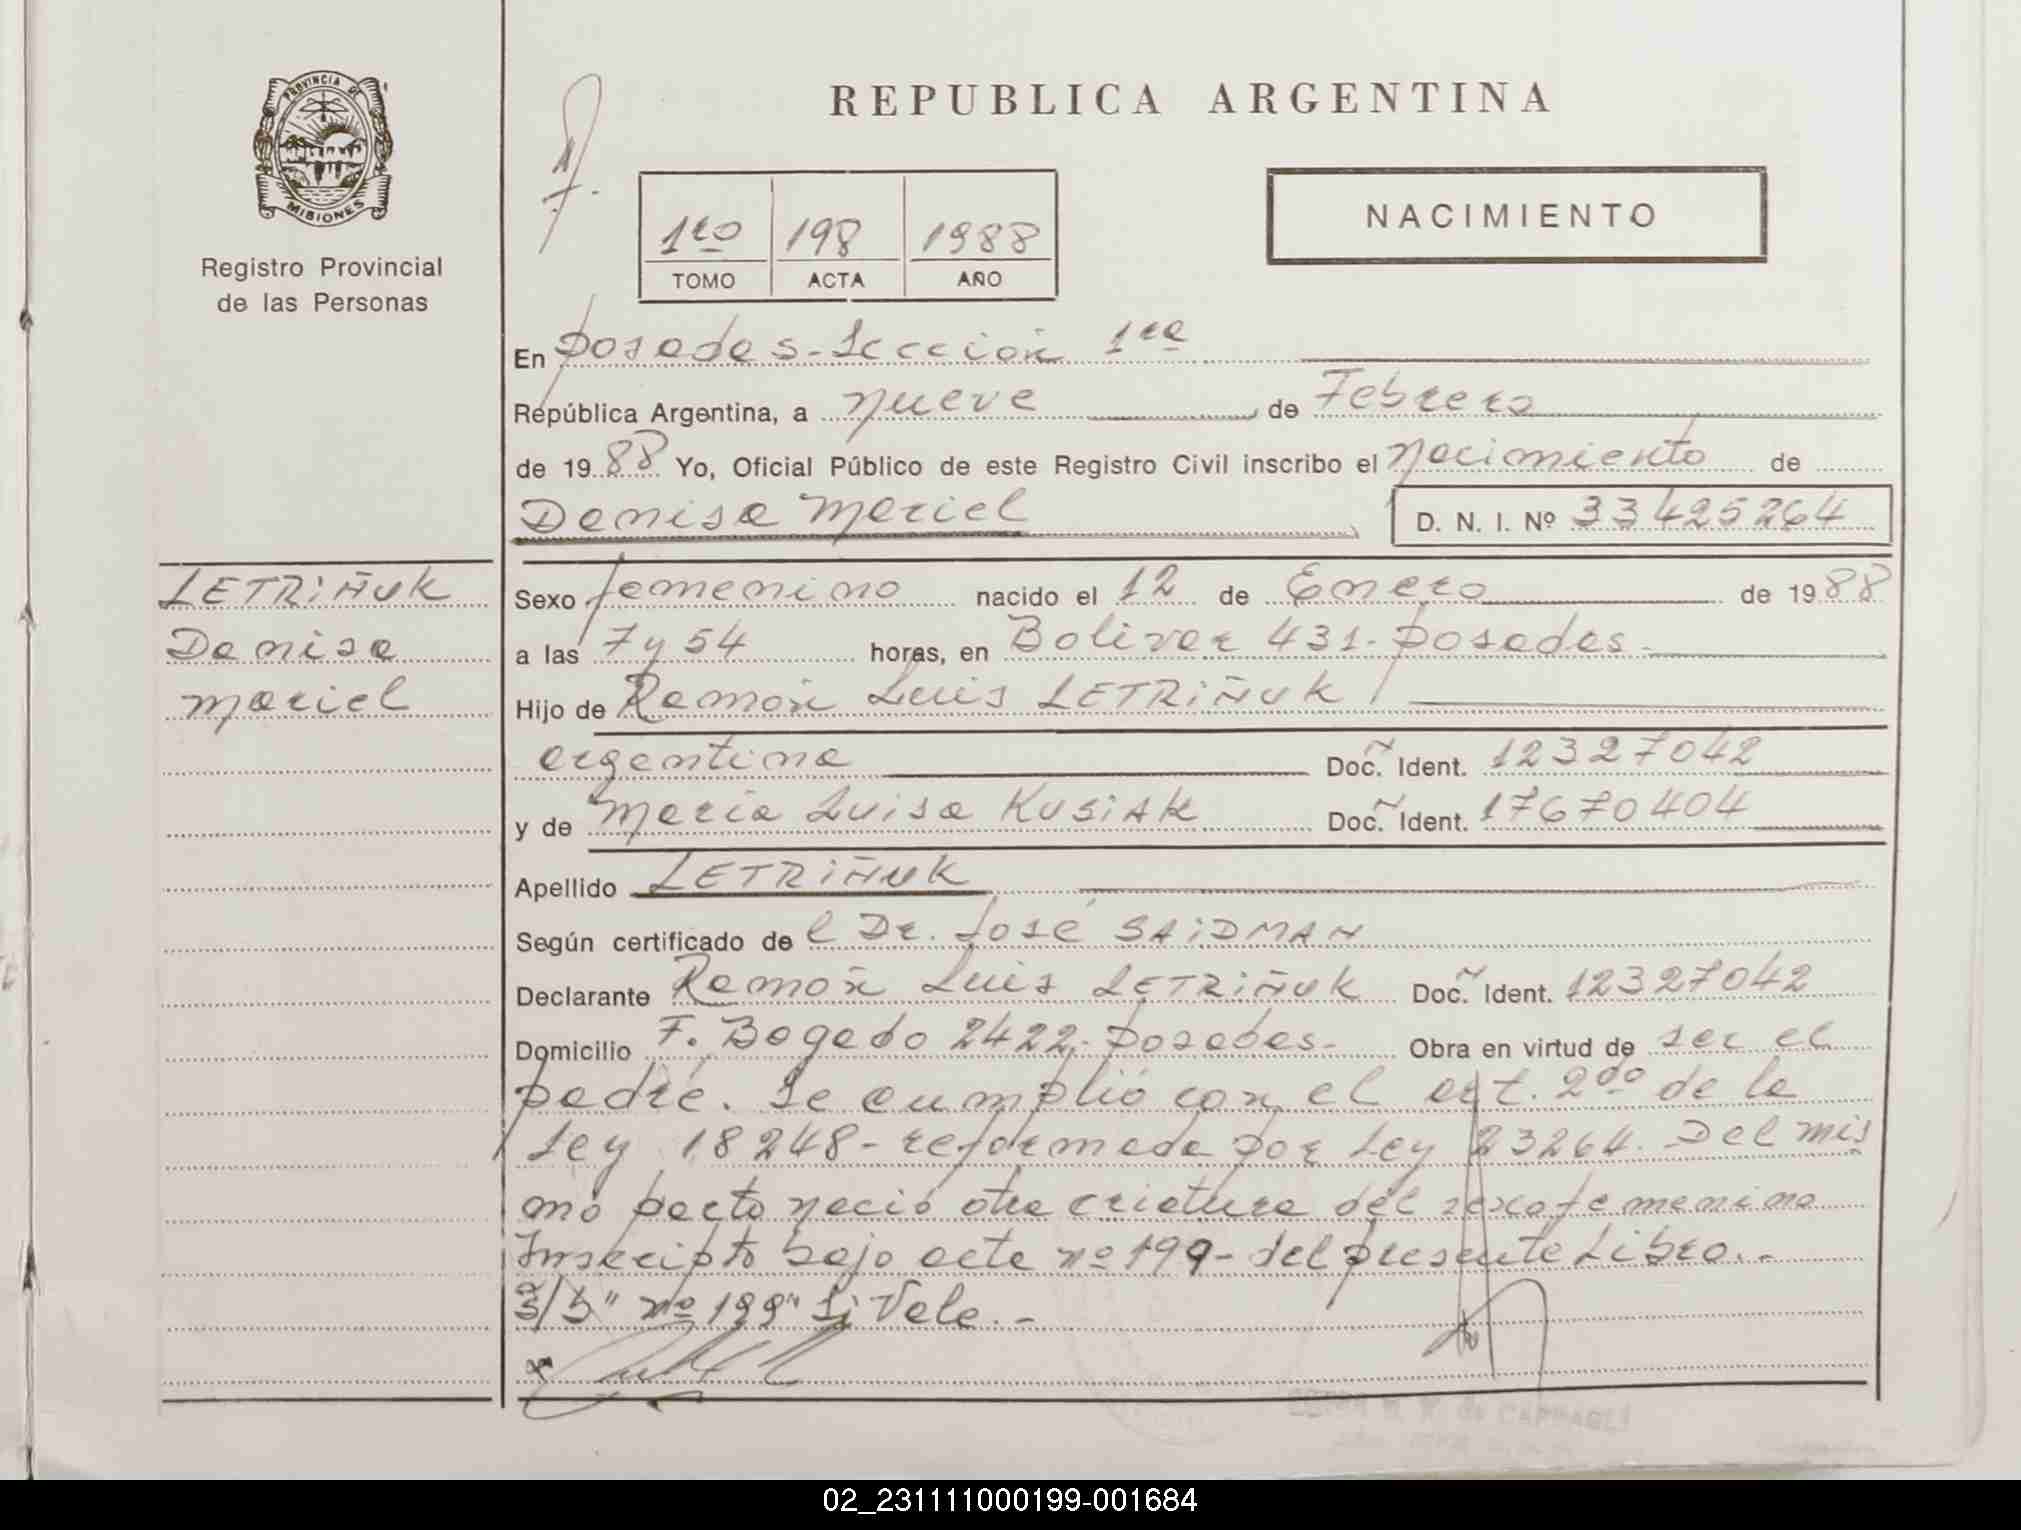 PROVINCIA DE
MISIONES
Registro Provincial
de las Personas
REPUBLICA ARGENTINA
1ro 198 1988
TOMO ACTA AÑO
NACIMIENTO
En Posadas - Sección 1ra
República Argentina, a nueve de Febrero
de 1988 Yo, Oficial Público de este Registro Civil inscribo el Nacimiento de
Denisa Mariel D. N. I. Nº 33425264
LETRiÑUK
Denisa
Mariel
Sexo femenino nacido el 12 de Enero de 1988
a las 7 y 54 horas, en Bolivar 431 - Posadas -
Hijo de Ramón Luis LETRiÑUK
argentina Doc. Ident. 12327042
y de Maria Luisa KUSiAK Doc. Ident. 17670404
Apellido LETRiÑUK
Según certificado de l Dr. José SAiDMAN
Declarante Ramón Luis LETRiÑUK Doc. Ident. 12327042
Domicilio F. Bogado 2422 - Posadas - Obra en virtud de ser el
padre. Se cumplió con el art. 2do de la
Ley 18248 - reformada por Ley 23264. Del mis
mo parto nació otra criatura del sexo femenino
Inscripto bajo acta nº 199 - del presente Libro. -
s/b " nº 199" Si Vale. -
de CAPPAGLI
02_231111000199-001684